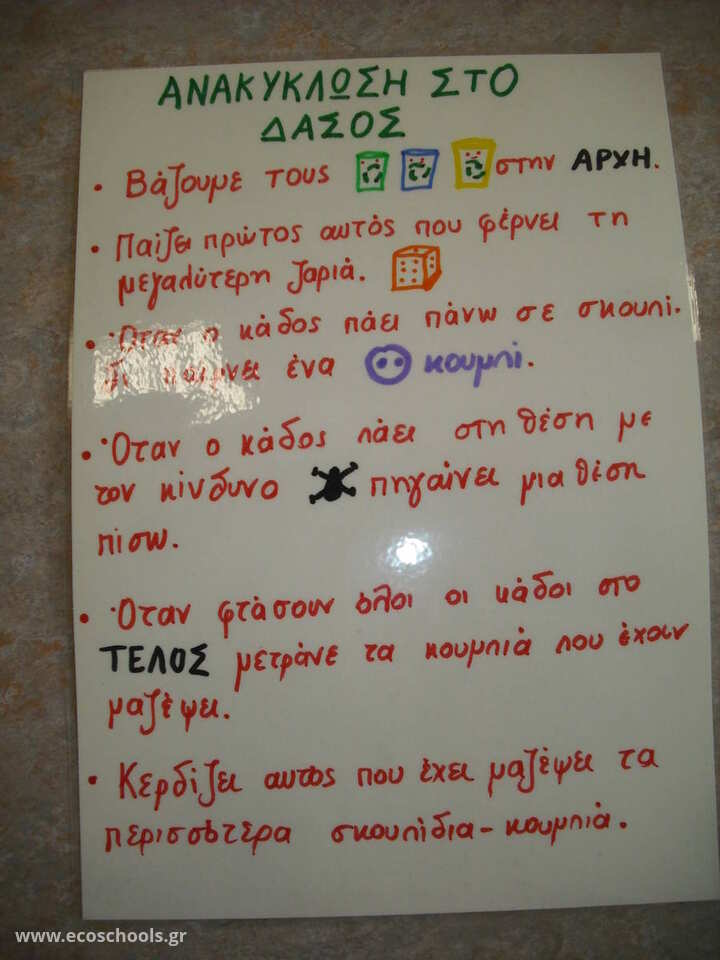 ΑΝΑΚΥΚΛΩΣΗ ΣΤΟ
ΔΑΣΟΣ
• Βάζουμε τους στην ΑΡΧΗ.
• Παίζει πρώτος αυτός που φέρνει τη
μεγαλύτερη ζαριά.
• Όταν ο κάδος πάει πάνω σε σκουπί-
δι παίρνει ένα κουμπί.
• Όταν ο κάδος πάει στη θέση με
τον κίνδυνο πηγαίνει μια θέση
πίσω.
• Όταν φτάσουν όλοι οι κάδοι στο
ΤΕΛΟΣ μετράνε τα κουμπιά που έχουν
μαζέψει.
• Κερδίζει αυτός που έχει μαζέψει τα
περισσότερα σκουπίδια-κουμπιά.
www.ecoschools.gr